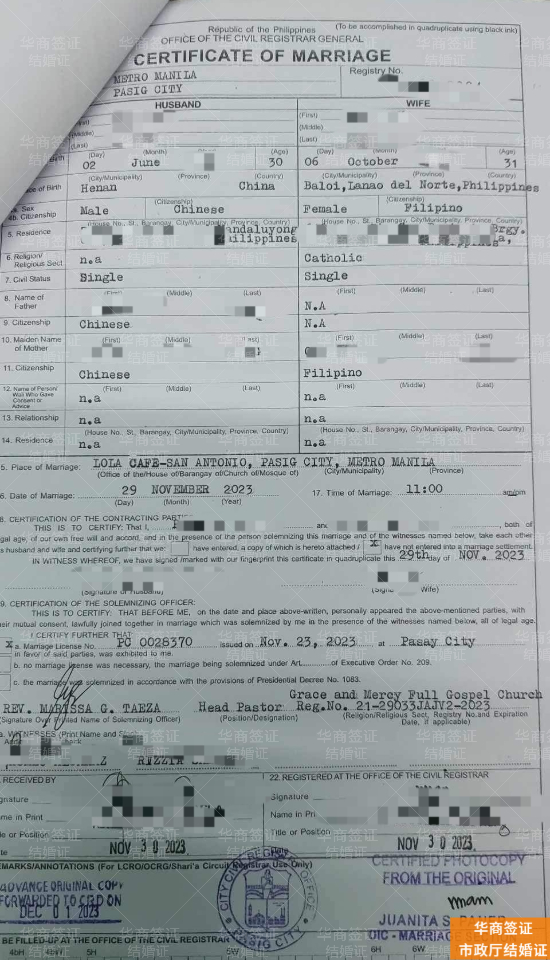 Republic of the Philippines
(To be accomplished in quadruplicate using black ink)
OFFICE OF THE CIVIL REGISTRAR GENERAL
CERTIFICATE OF MARRIAGE
METRO MANILA
PASIG CITY
Registry No.
HUSBAND WIFE
(First)
(Middle) (Middle)
(Last) (Last)
(Day) (Month) (Age) (Day) (Month) (Age)
02 June 30 06 October 31
(City/Municipality) (Province) (Country) (City/Municipality) (Province) (Country)
Henan China Baloi,Lanao del Norte,Philippines
of Birth
Sex
4b. Citizenship
(Citizenship) (Citizenship)
Male Chinese Female Filipino
(House No., St., Barangay, City/Municipality, Province, Country) (House No., St., Barangay, City/Municipality, Province, Country)
5. Residence
andaluyong Brgy.
6. Religion/
Religious Sect
n.a Catholic
7. Civil Status Single Single
8. Name of
Father
(First) (Middle) (Last) (First) (Middle) (Last)
N.A
9. Citizenship Chinese N.A
10. Maiden Name
of Mother
(First) (Middle) (Last) (First) (Middle) (Last)
11. Citizenship Chinese Filipino
12. Name of Person/
Wali Who Gave
Consent or
Advice
(First) (Middle) (Last) (First) (Middle) (Last)
n.a n.a
13. Relationship n.a n.a
(House No., St., Barangay, City/Municipality, Province, Country) (House No., St., Barangay, City/Municipality, Province, Country)
14. Residence n.a n.a
5. Place of Marriage: LOLA CAFE-SAN ANTONIO, PASIG CITY, METRO MANILA
(Office of the/House of/Barangay of/Church of/Mosque of) (City/Municipality) (Province)
6. Date of Marriage: 29 NOVEMBER 2023 17. Time of Marriage: 11:00 am/pm
(Day) (Month) (Year)
8. CERTIFICATION OF THE CONTRACTING PARTIES
THIS IS TO CERTIFY: That I, and both of
gal age, of our own free will and accord, and in the presence of the person solemnizing this marriage and of the witnesses named below, take each other
s husband and wife and certifying further that we: have entered, a copy of which is hereto attached / x have not entered into a marriage settlement.
IN WITNESS WHEREOF, we have signed/marked with our fingerprint this certificate in quadruplicate this 29th day of NOV. 2023
Wife)
9. CERTIFICATION OF THE SOLEMNIZING OFFICER:
THIS IS TO CERTIFY: THAT BEFORE ME, on the date and place above-written, personally appeared the above-mentioned parties, with
their mutual consent, lawfully joined together in marriage which was solemnized by me in the presence of the witnesses named below, all of legal age.
I CERTIFY FURTHER THAT
x a. Marriage License No. PC 0028370 issued on Nov. 23, 2023 at Pasay City
in favor of said parties, was exhibited to me.
b. no marriage license was necessary, the marriage being solemnized under Art. of Executive Order No. 209.
c. the marriage was solemnized in accordance with the provisions of Presidential Decree No. 1083.
Grace and Mercy Full Gospel Church
REV. MARISSA G. TAEZA Head Pastor Reg.No. 21-29033JAJV2-2023
(Signature Over Printed Name of Solemnizing Officer) (Position/Designation) (Religion/Religious Sect, Registry No.and Expiration
Date, if applicable)
WITNESSES (Print Name and
RECEIVED BY 22. REGISTERED AT THE OFFICE OF THE CIVIL REGISTRAR
gnature Signature
me in Print Name in Pri
le or Position Title or Position
NOV 30 2023 NOV 30 2023
EMARKS/ANNOTATIONS (For LCRO/OCRG/Shari'a Circuit Registrar Use Only)
CERTIFIED PHOTOCOPY
FROM THE ORIGINAL
ADVANCE ORIGINAL COPY
FORWARDED TO CRD ON
DEC 01 2023
CITY CIVIL REGISTRAR OFFICE
PASIG CITY
JUANITA S.
OIC - MARRIAGE
BE FILLED-UP AT THE OFFICE OF THE CIVIL REGISTRAR
4bH 4bW 5H 5W 6H 6W
华商签证
结婚证
华商签证
市政厅结婚证